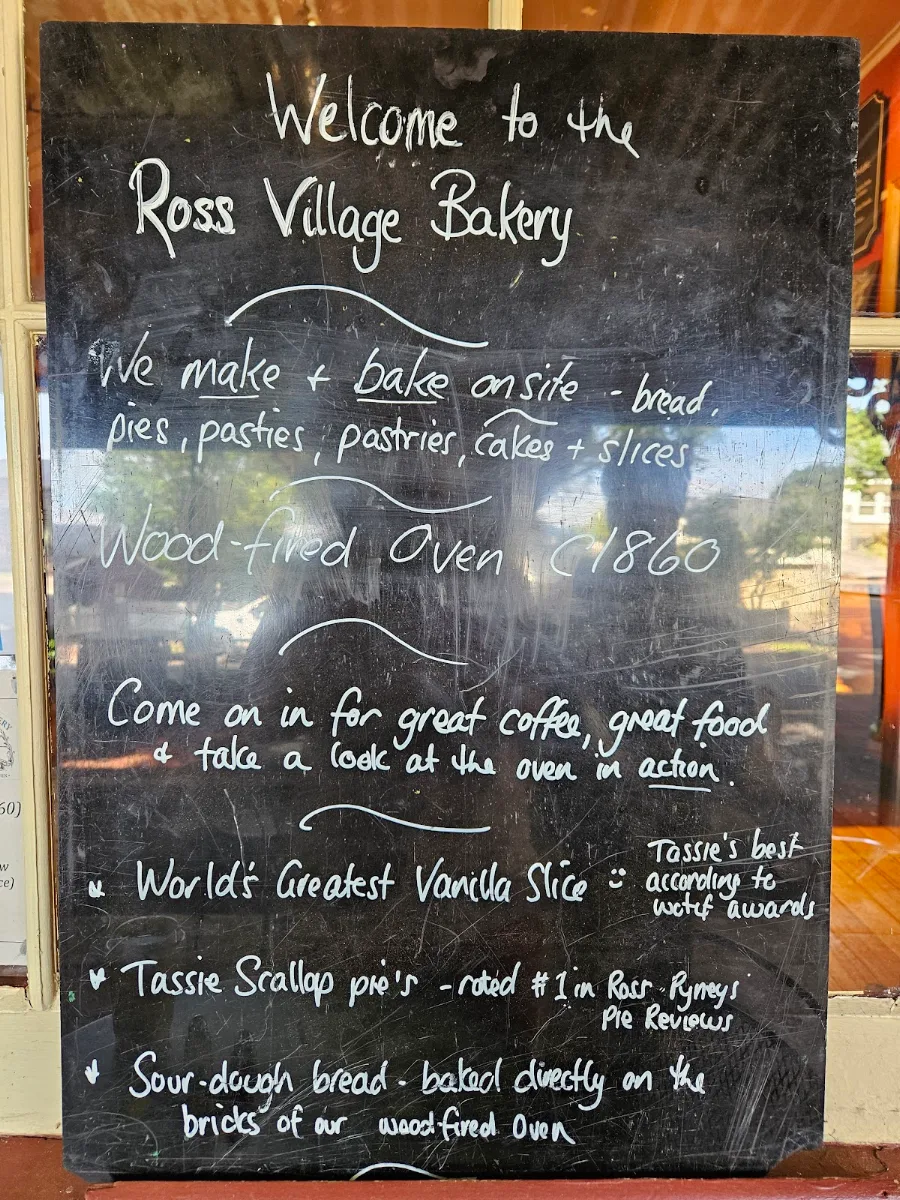 Welcome to the
Ross Village Bakery
We make + bake onsite - bread,
pies, pasties, pastries, cakes + slices
Wood-fired Oven C1860
Come on in for great coffee, great food
& take a look at the oven in action.
World's Greatest Vanilla Slice :) Tassie's best
according to
wotif awards
Tassie Scallap pie's - rated #1 in Ross Pyneys
Pie Reviews
Sour-dough bread - baked directly on the
bricks of our wood-fired Oven
60)